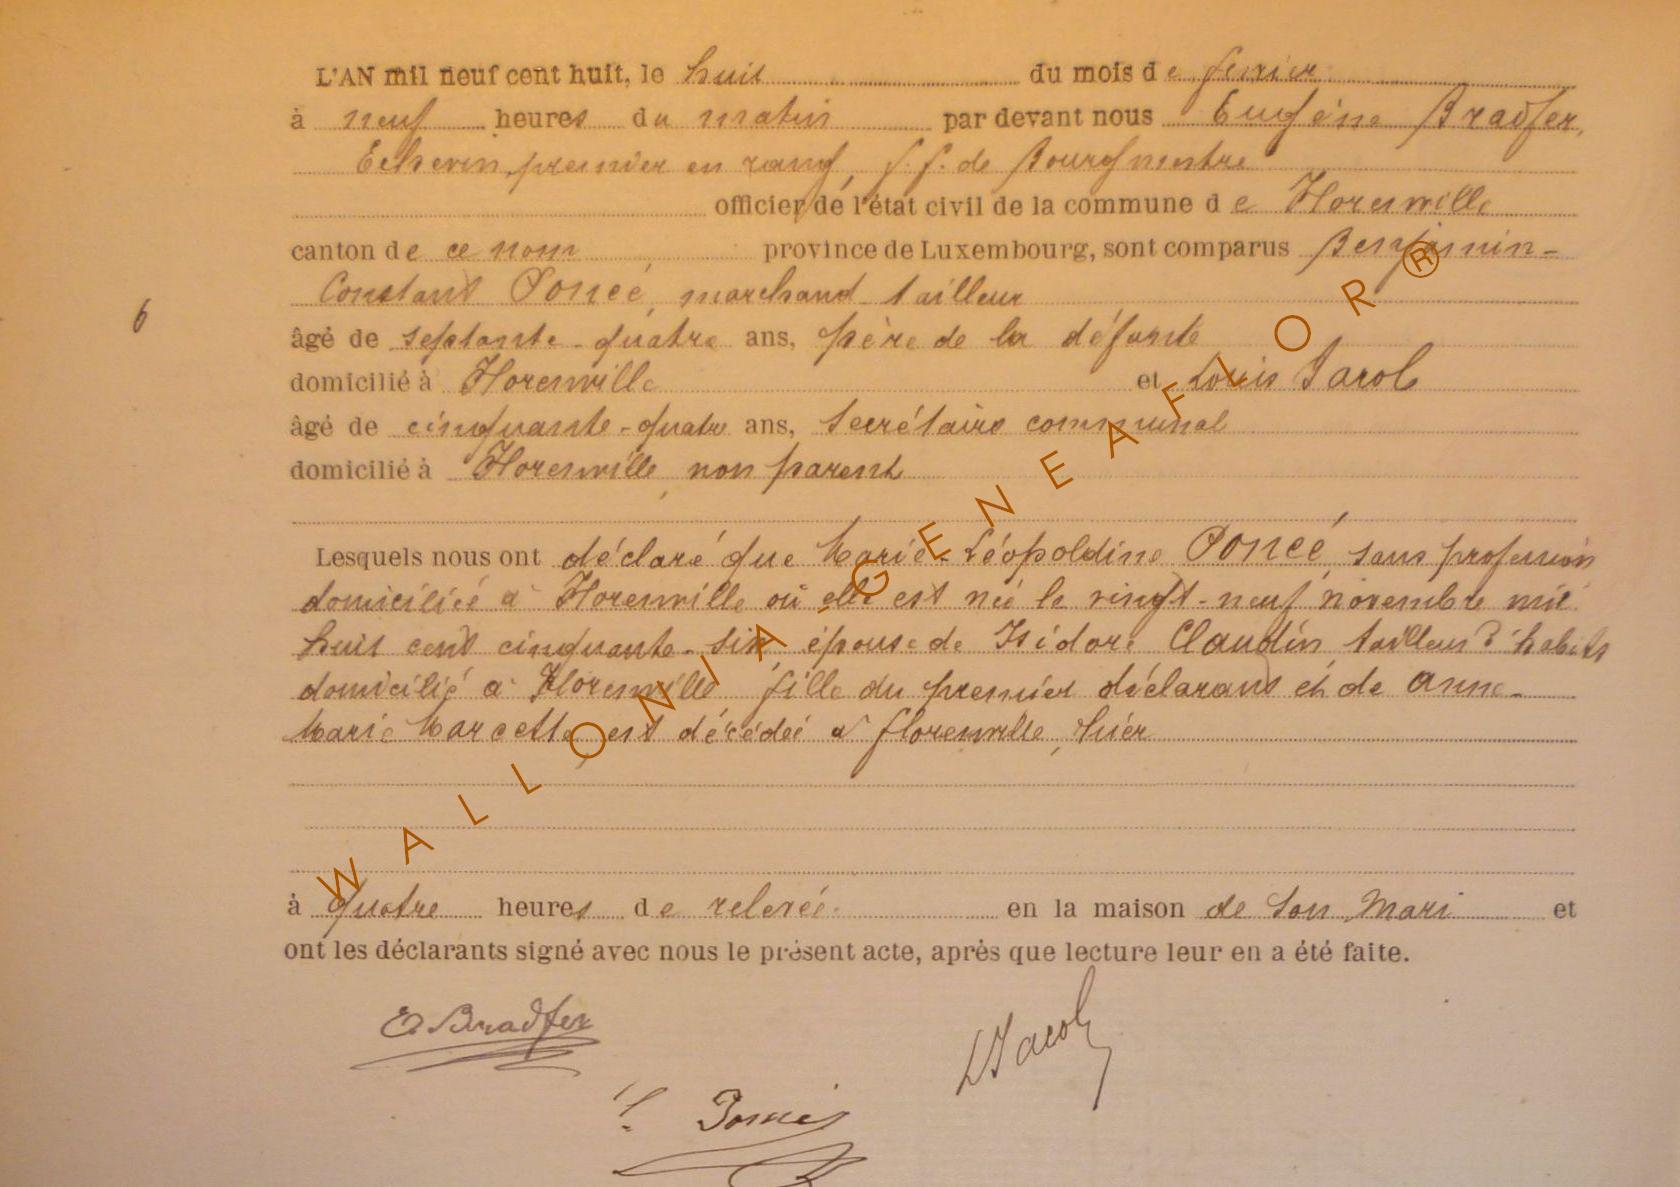 L'AN mil neuf cent huit, le huit du mois de fevrier
à neuf heures du matin par devant nous Eugène Bradfer,
Echevin, premier en rang, f. f. de Bourgmestre
officier de l'état civil de la commune de Florenville
canton de ce nom, province de Luxembourg, sont comparus Benjamin-
Constant Poncé, marchand tailleur
6
âgé de septante-quatre ans, père de la défunte
domicilié à Florenville et Louis Jacob
âgé de cinquante-quatre ans, secrétaire communal
domicilié à Florenville, non parent
Lesquels nous ont déclaré que Marie-Léopoldine Poncé, sans profession
domiciliée à Florenville où elle est née le vingt-neuf novembre mil
huit cent cinquante-six, épouse de Isidore Claudin, tailleur d'habits
domicilié à Florenville, fille du premier déclarant et de Anne-
Marie Marcette, est décédée à florenville, hier
à quatre heures de relevée en la maison de son Mari et
ont les déclarants signé avec nous le présent acte, après que lecture leur en a été faite.
E Bradfer
L Jacob
Poncé
WALLONIA-GENEAFLOR®